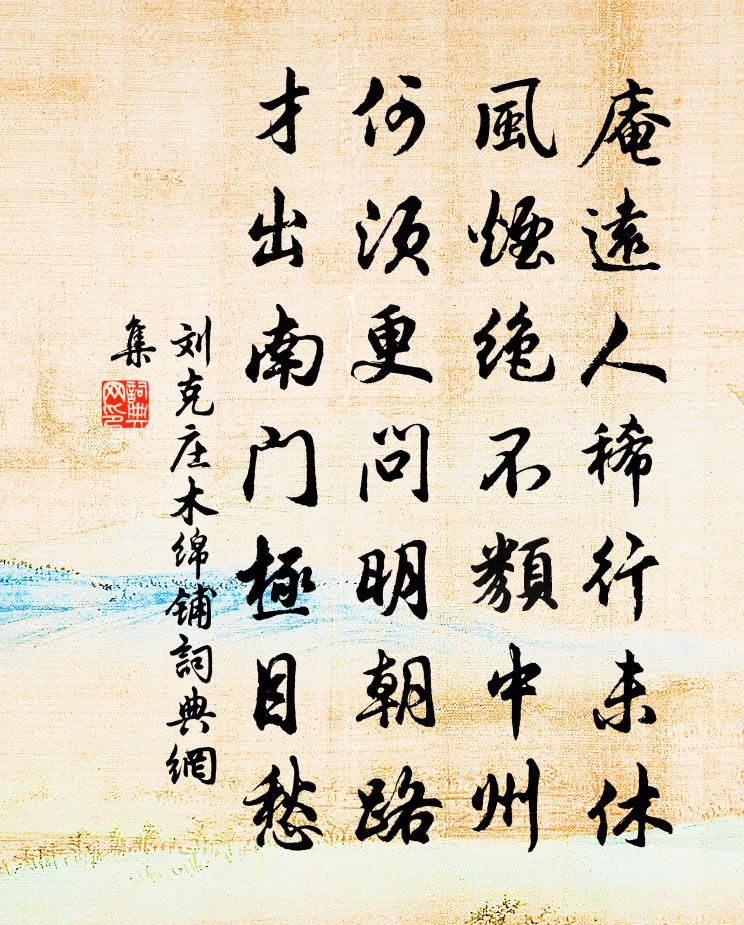 庵遠人稀行未休
風煙絶不類中州
何須更问明朝路
才出南门極目愁
刘克庄木绵铺詞典網
集
詞典
网印